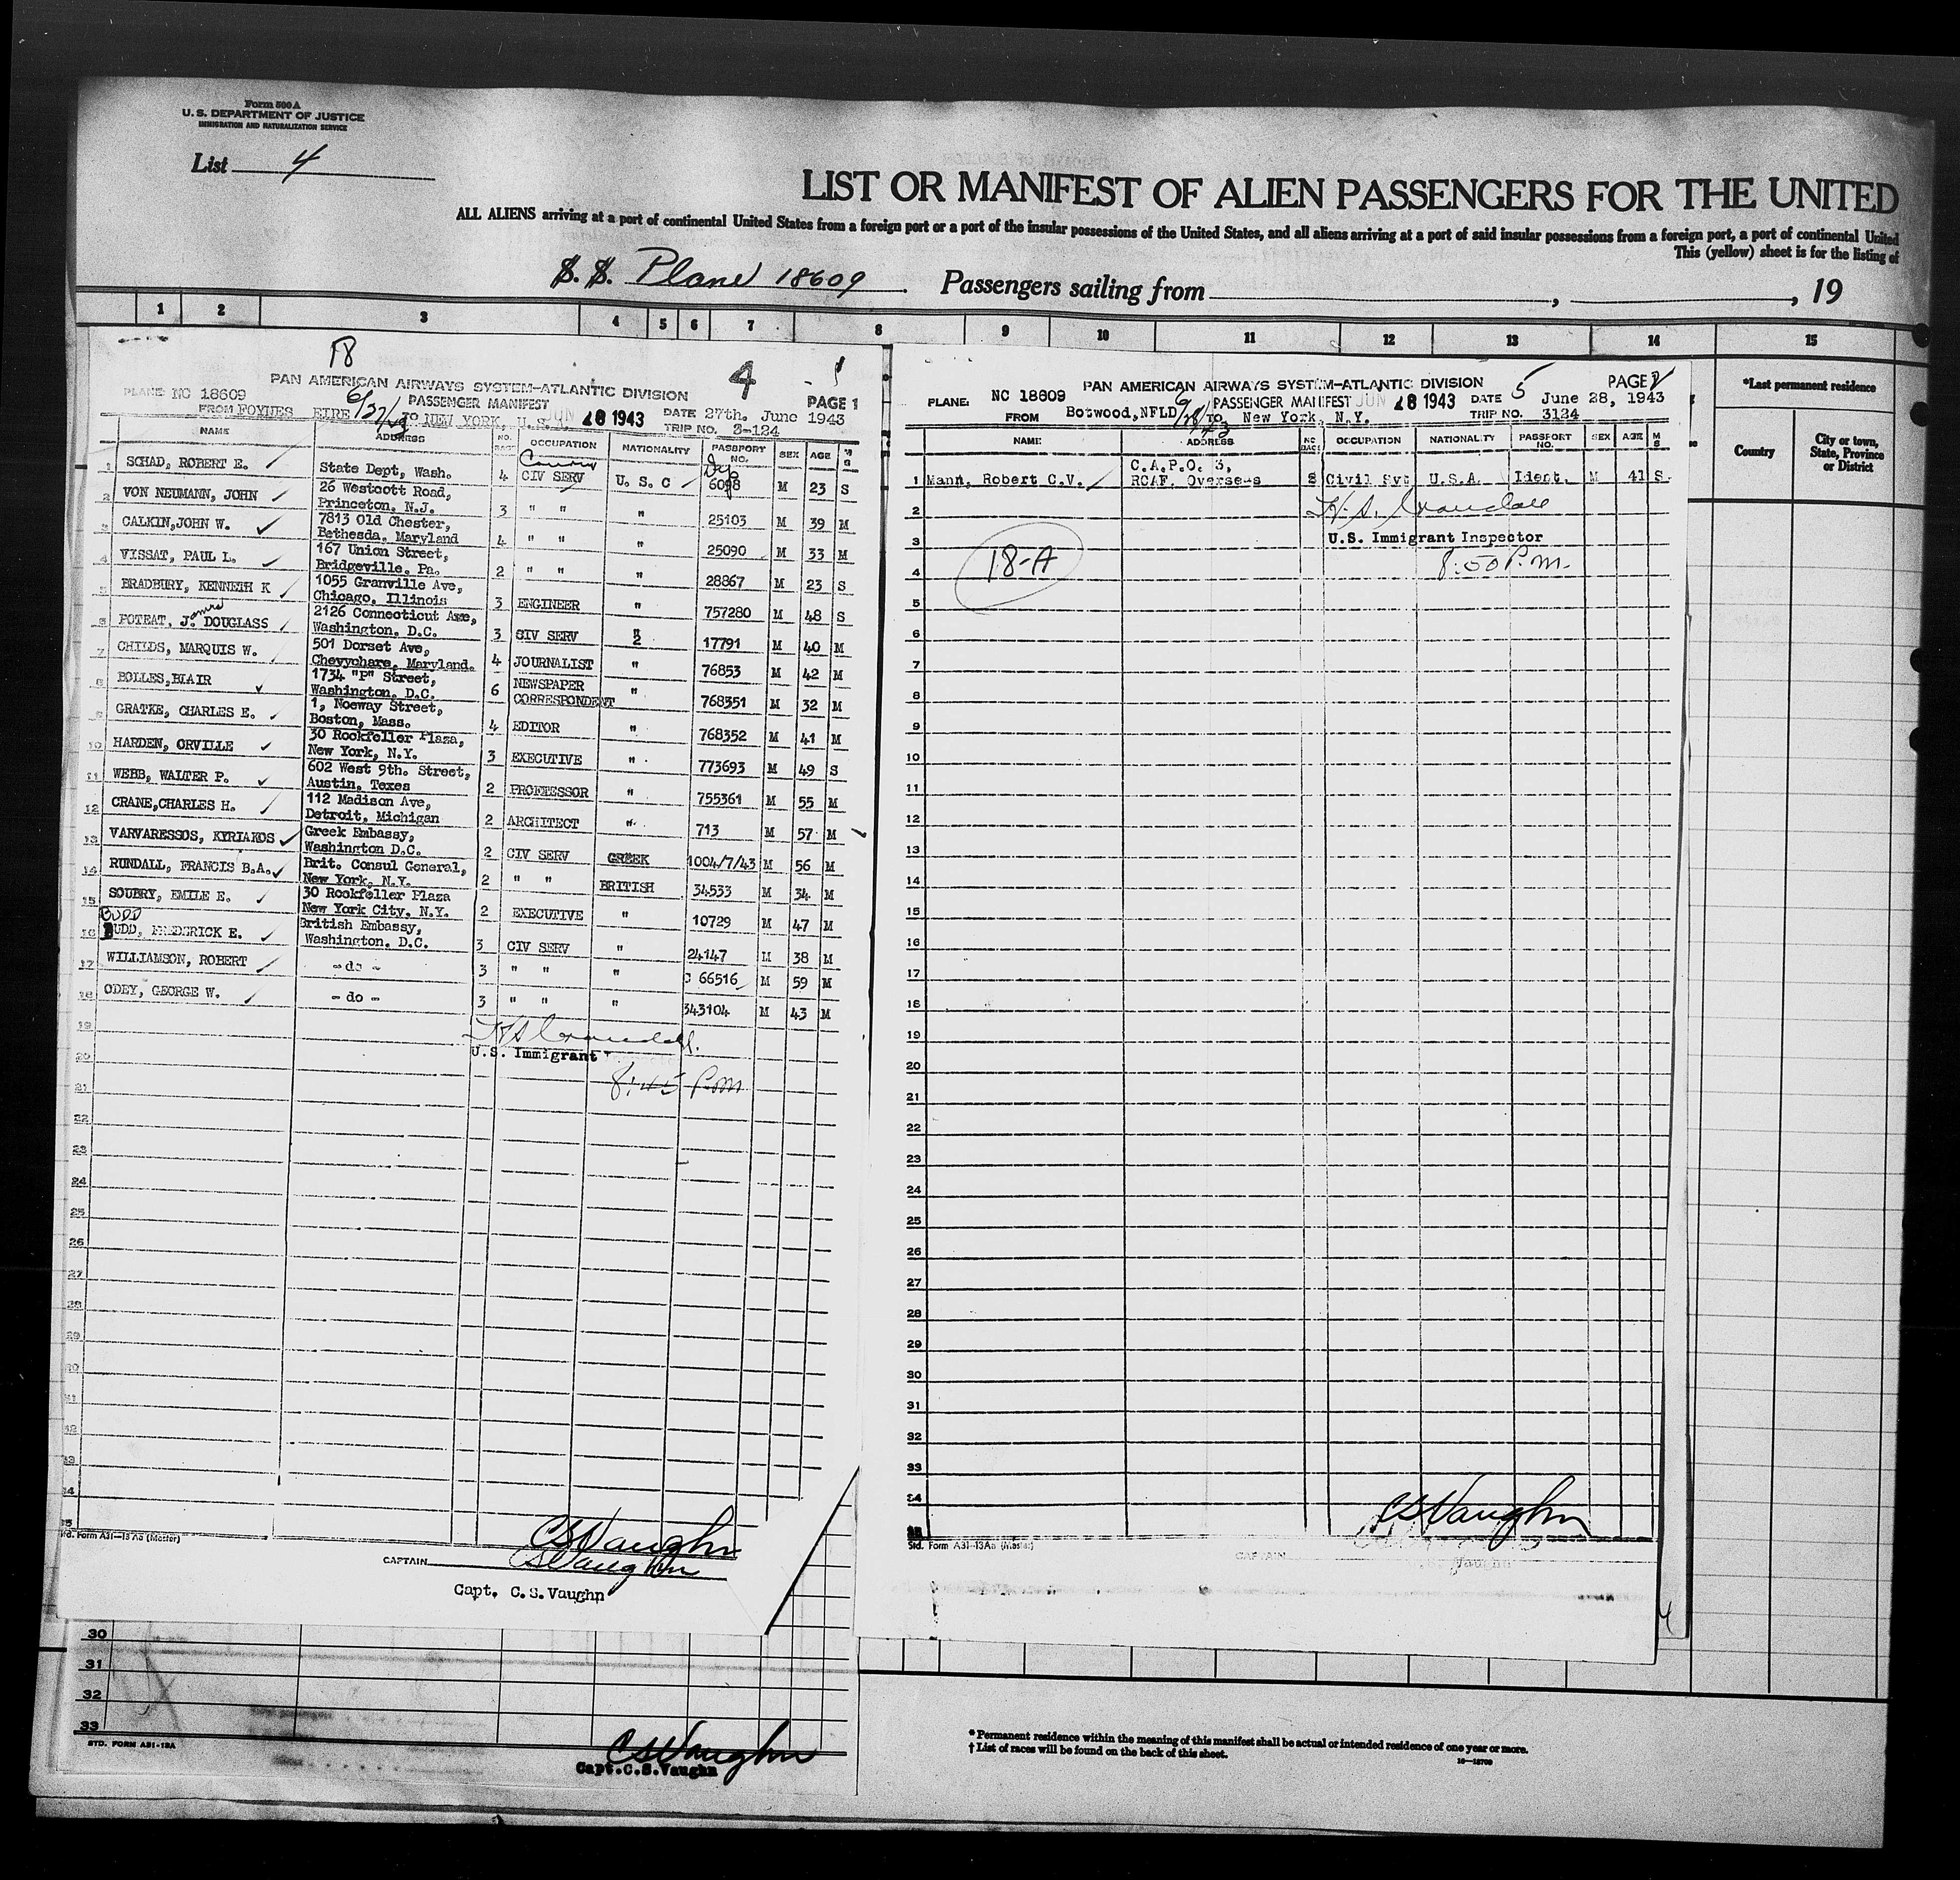 Form 500 A
U. S. DEPARTMENT OF JUSTICE
IMMIGRATION AND NATURALIZATION SERVICE
List 4
LIST OR MANIFEST OF ALIEN PASSENGERS FOR THE UNITED
ALL ALIENS arriving at a port of continental United States from a foreign port or a port of the insular possessions of the United States, and all aliens arriving at a port of said insular possessions from a foreign port, a port of continental United
This (yellow) sheet is for the listing of
S. S. Plane 18609 Passengers sailing from , , 19
1 2 3 4 5 6 7 8 9 10 11 12 13 14 15
18
4
PAN AMERICAN AIRWAYS SYSTEM-ATLANTIC DIVISION
PLANE: NC 18609 PASSENGER MANIFEST PAGE 1
FROM FOYNES EIRE 6/27/43 TO NEW YORK, U.S.A. JUN 28 1943 DATE 27th. June 1943
TRIP NO. 3-124
NAME ADDRESS NO. BAGS OCCUPATION NATIONALITY PASSPORT NO. SEX AGE M S
1 SCHAD, ROBERT E. State Dept, Wash. 4 Courier CIV SERV U. S. C Dip 6098 M 23 S
2 VON NEUMANN, JOHN 26 Westcott Road, Princeton, N.J. 3 " " " 25103 M 39 M
3 CALKIN, JOHN W. 7813 Old Chester, Bethesda, Maryland 4 " " " 25090 M 33 M
4 VISSAT, PAUL L. 167 Union Street, Bridgeville, Pa. 2 " " " 28867 M 23 S
5 BRADBURY, KENNETH K 1055 Granville Ave, Chicago, Illinois 3 ENGINEER " 757280 M 48 S
6 POTEAT, J. DOUGLASS 2126 Connecticut Ave, Washington, D.C. 3 CIV SERV " 17791 M 40 M
7 CHILDS, MARQUIS W. 501 Dorset Ave, Chevychare, Maryland. 4 JOURNALIST " 76853 M 42 M
8 BOLLES, BLAIR 1734 "P" Street, Washington, D.C. 6 NEWSPAPER CORRESPONDENT " 768351 M 32 M
9 GRATKE, CHARLES E. 1, Noeway Street, Boston, Mass. 4 EDITOR " 768352 M 41 M
10 HARDEN, ORVILLE 30 Rockfeller Plaza, New York, N.Y. 3 EXECUTIVE " 773693 M 49 S
11 WEBB, WALTER P. 602 West 9th. Street, Austin, Texas 2 PROFESSOR " 755361 M 55 M
12 CRANE, CHARLES H. 112 Madison Ave, Detroit, Michigan 2 ARCHITECT " 713 M 57 M
13 VARVARESSOS, KYRIAKOS Greek Embassy, Washington D.C. 2 CIV SERV GREEK 1004/7/43 M 56 M
14 RUNDALL, FRANCIS B.A. Brit. Consul General, New York, N.Y. 2 " " BRITISH 34533 M 34 M
15 SOUBRY, EMILE E. 30 Rockfeller Plaza New York City, N.Y. 2 EXECUTIVE " 10729 M 47 M
16 BUDD, FREDERICK E. British Embassy, Washington, D.C. 3 CIV SERV " 24147 M 38 M
17 WILLIAMSON, ROBERT - do - 3 " " " C 66516 M 59 M
18 ODEY, GEORGE W. - do - 3 " " " 343104 M 43 M
19
20 U.S. Immigrant
21 8:45 P.M.
22
23
24
25
26
27
28
29
30
31
32
33
34
35
Std. Form A31-13 Aa (Master)
CSVaughn
CAPTAIN CSVaughn
Capt. C.S.Vaughn
30
31
32
33
STD. FORM A31-13A
CSVaughn
Capt.C.S.Vaughn
5
PAN AMERICAN AIRWAYS SYSTEM-ATLANTIC DIVISION PAGE 2
PLANE: NC 18609 PASSENGER MANIFEST JUN 28 1943 DATE June 28, 1943
FROM Botwood, NFLD 6/28/43 TO New York, N.Y. TRIP NO. 3124
NAME ADDRESS NO BAGS OCCUPATION NATIONALITY PASSPORT NO. SEX AGE M S
1 Mann, Robert C.V. C.A.P.O. 3, RCAF, Overseas 2 Civil Svt U.S.A. Ident. M 41 S
2 H.S. Crandall
3 U.S. Immigrant Inspector
4 18-A 8:50 P.M.
5
6
7
8
9
10
11
12
13
14
15
16
17
18
19
20
21
22
23
24
25
26
27
28
29
30
31
32
33
34
35
Std. Form A31-13Aa (Master)
CSVaughn
CAPTAIN
Vaughn
*Last permanent residence
Country
City or town, State, Province or District
* Permanent residence within the meaning of this manifest shall be actual or intended residence of one year or more.
† List of races will be found on the back of this sheet.